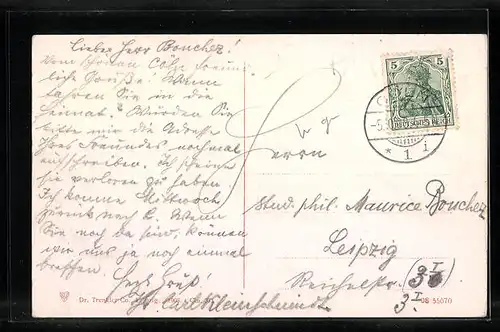 Lieber Herr Bouchez!
Vom schönen Cöln freund-
liche Grüße! Wann
fahren Sie in die
Heimat? Würden Sie
bitte mir die Adresse
Ihres Freundes nochmal
aufschreiben. Ich scheine
sie verloren zu haben.
Ich komme Mittwoch
zurück nach L. Wenn
Sie noch da sind, können
wir uns ja noch einmal
treffen.
Herzl. Gruß!
5 5
DEUTSCHES REICH
* 1 i
Herrn
stud. phil. Maurice Bouchez
Leipzig
Reichelstr.
3 I
Dr. Trenkler Co., Leipzig.
55070